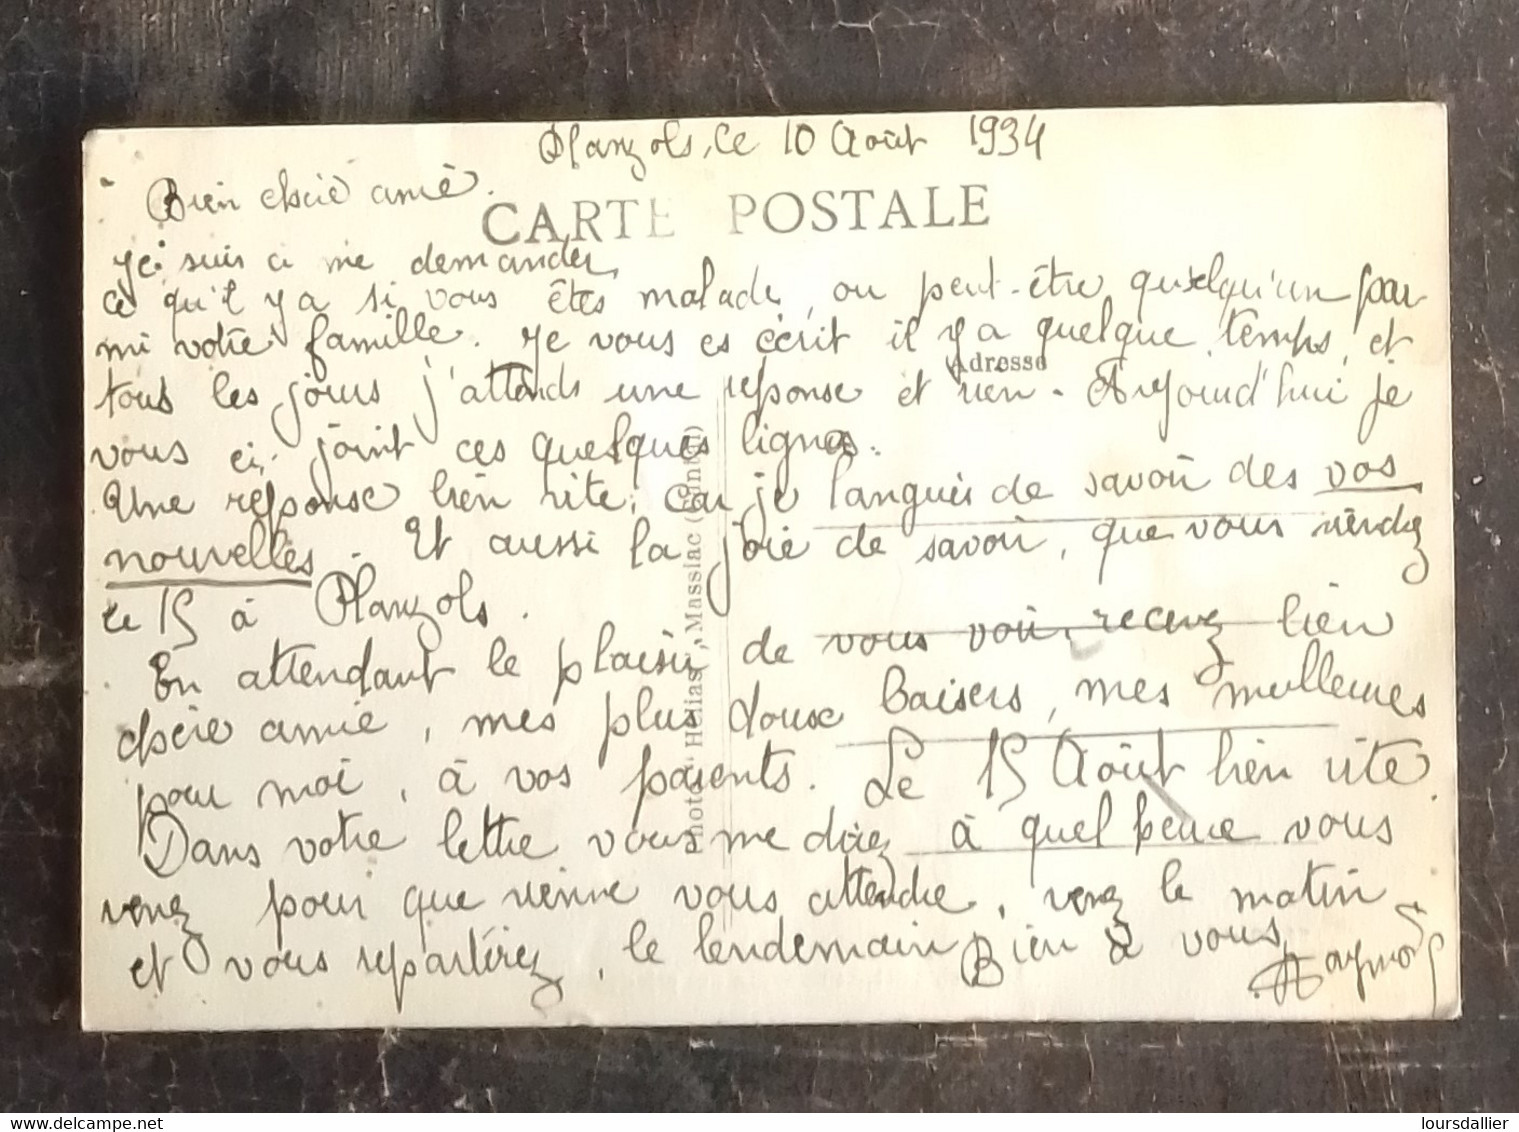 Planzols, le 10 Août 1934
Bien chère amie.
CARTE POSTALE
Je suis a me demander,
ce qu'il y a si vous êtes malade, ou peut-être quelqu'un par
mi votre famille. Je vous es écrit il y a quelque temps, et
Adresse
tous les jours j'attends une reponse et rien. Aujourd'hui je
vous ci-joint ces quelques lignes.
Une réponse bien vite, car je languis de savoir des vos
nouvelles. Et aussi la joie de savoir, que vous viendez
le 15 à Planzols.
En attendant le plaisir de vous voir, recevez bien
chère amie, mes plus doux baisers, mes meilleures
pour moi, à vos parents. Le 15 Août bien vite.
Dans votre lettre vous me direz à quel heure vous
venez pour que vienne vous attendre, venez le matin
et vous repartirez, le lendemain Bien à vous
Raymond
Photo "Hélias", Massiac (Cantal)
loursdallier